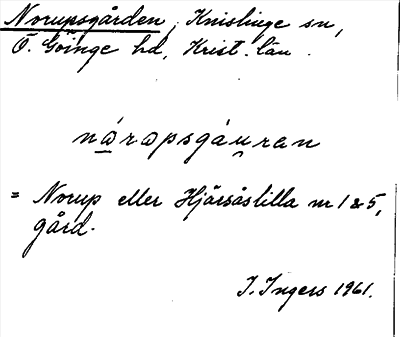 Norupsgården, Knislinge sn,
Ö. Göinge hd, Krist. län.
nåropsgáu̯ran
= Norup eller Hjärsåslilla nr 1 & 5,
gård.
I. Ingers 1961.